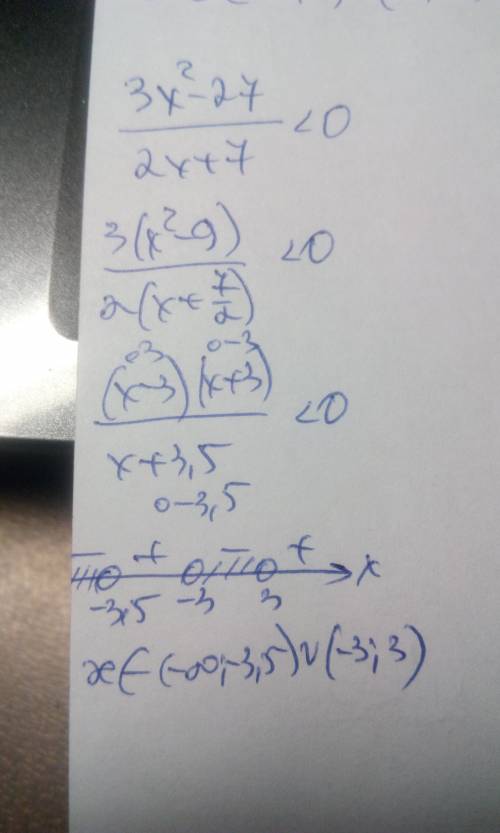 3x²-27 / 2x+7 <0
3(x²-9) / 2(x+7/2) <0
○3 ○-3
(x-3)(x+3) / x+3,5 <0
○-3,5
- + - + x
-3,5 -3 3
x∈(-∞;-3,5)∪(-3;3)